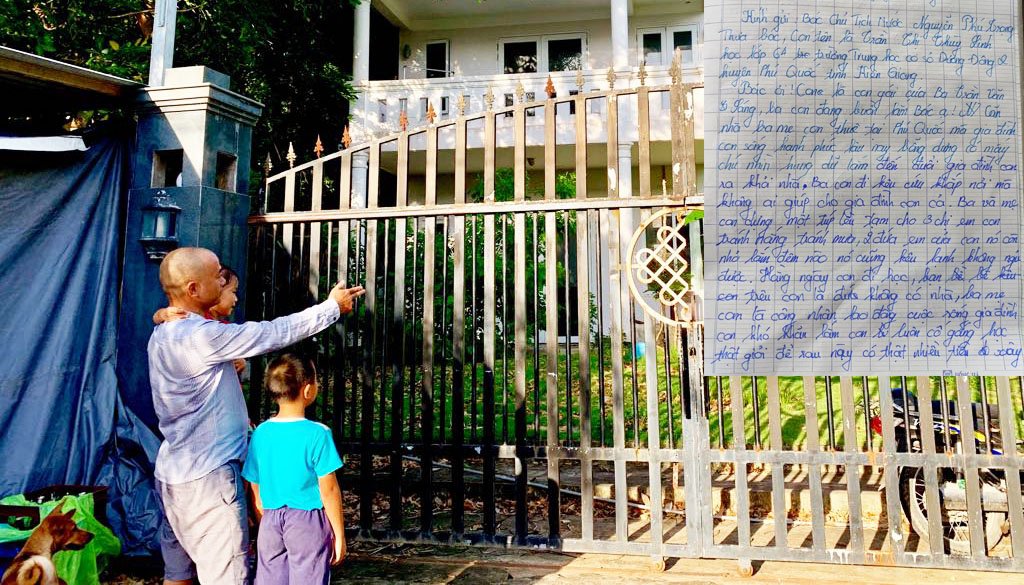 Kính gửi: Bác Chủ Tịch Nước Nguyễn Phú Trọng
Thưa bác, Con tên là Trần Thị Thuỷ Linh
học lớp 6 trường Trung học cơ sở Dương Đông 2
huyện Phú Quốc tỉnh Kiên Giang.
Bác ơi! Con là con gái của Ba Trần Văn
Tống, ba con đang buồn lắm Bác ạ! Vì Căn
nhà ba mẹ con thuê tại Phú Quốc mà gia đình
con sống hạnh phúc lâu nay bỗng dưng có mấy
chú nhìn hung dữ lắm đến đuổi gia đình con
ra khỏi nhà. Ba con đi kêu cứu khắp nơi mà
không ai giúp cho gia đình con cả. Ba và mẹ
con dựng một túp lều tạm cho 3 chị em con
tránh nắng tránh mưa, 2 đứa em của con nó còn
nhỏ lắm đêm nào nó cũng kêu lạnh không ngủ
được. Hàng ngày con đi học, bạn bè
con trêu con là đứa không có nhà, ba mẹ
con là công nhân lao động cuộc sống gia đình
con khó khăn lắm con luôn cố gắng học
thật giỏi để sau này có thật nhiều tiền để xây